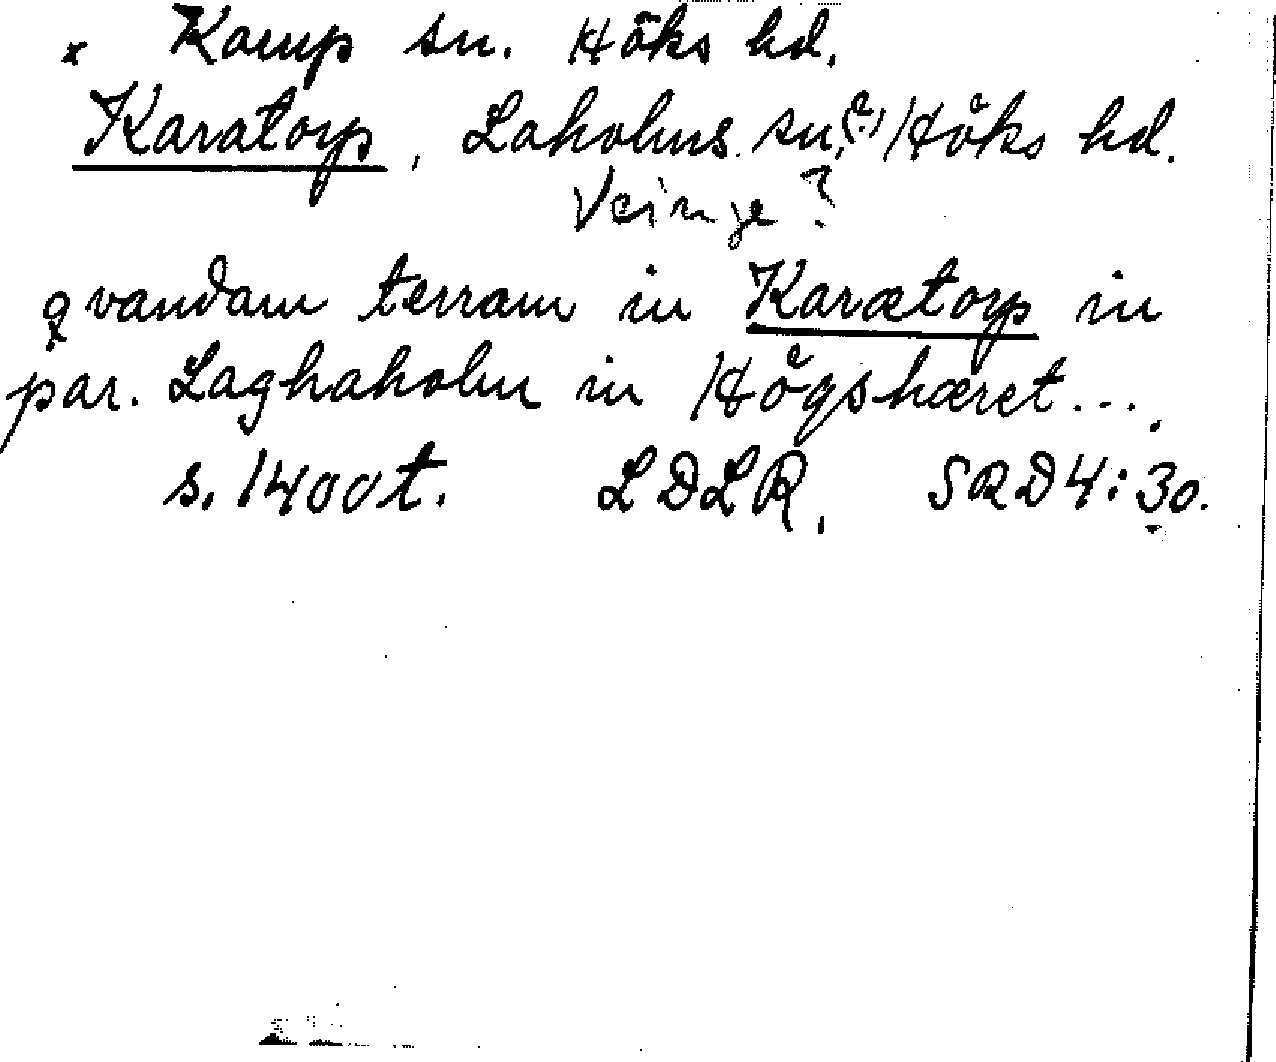 x Kaup sn. Höks hd.
Karatorp, Laholms sn.(?) Höks hd.
Veinge?
qvandam terram in Karætorp in
par. Laghaholm in Högshæret....
s. 1400t. LDLR, SRD 4:30.